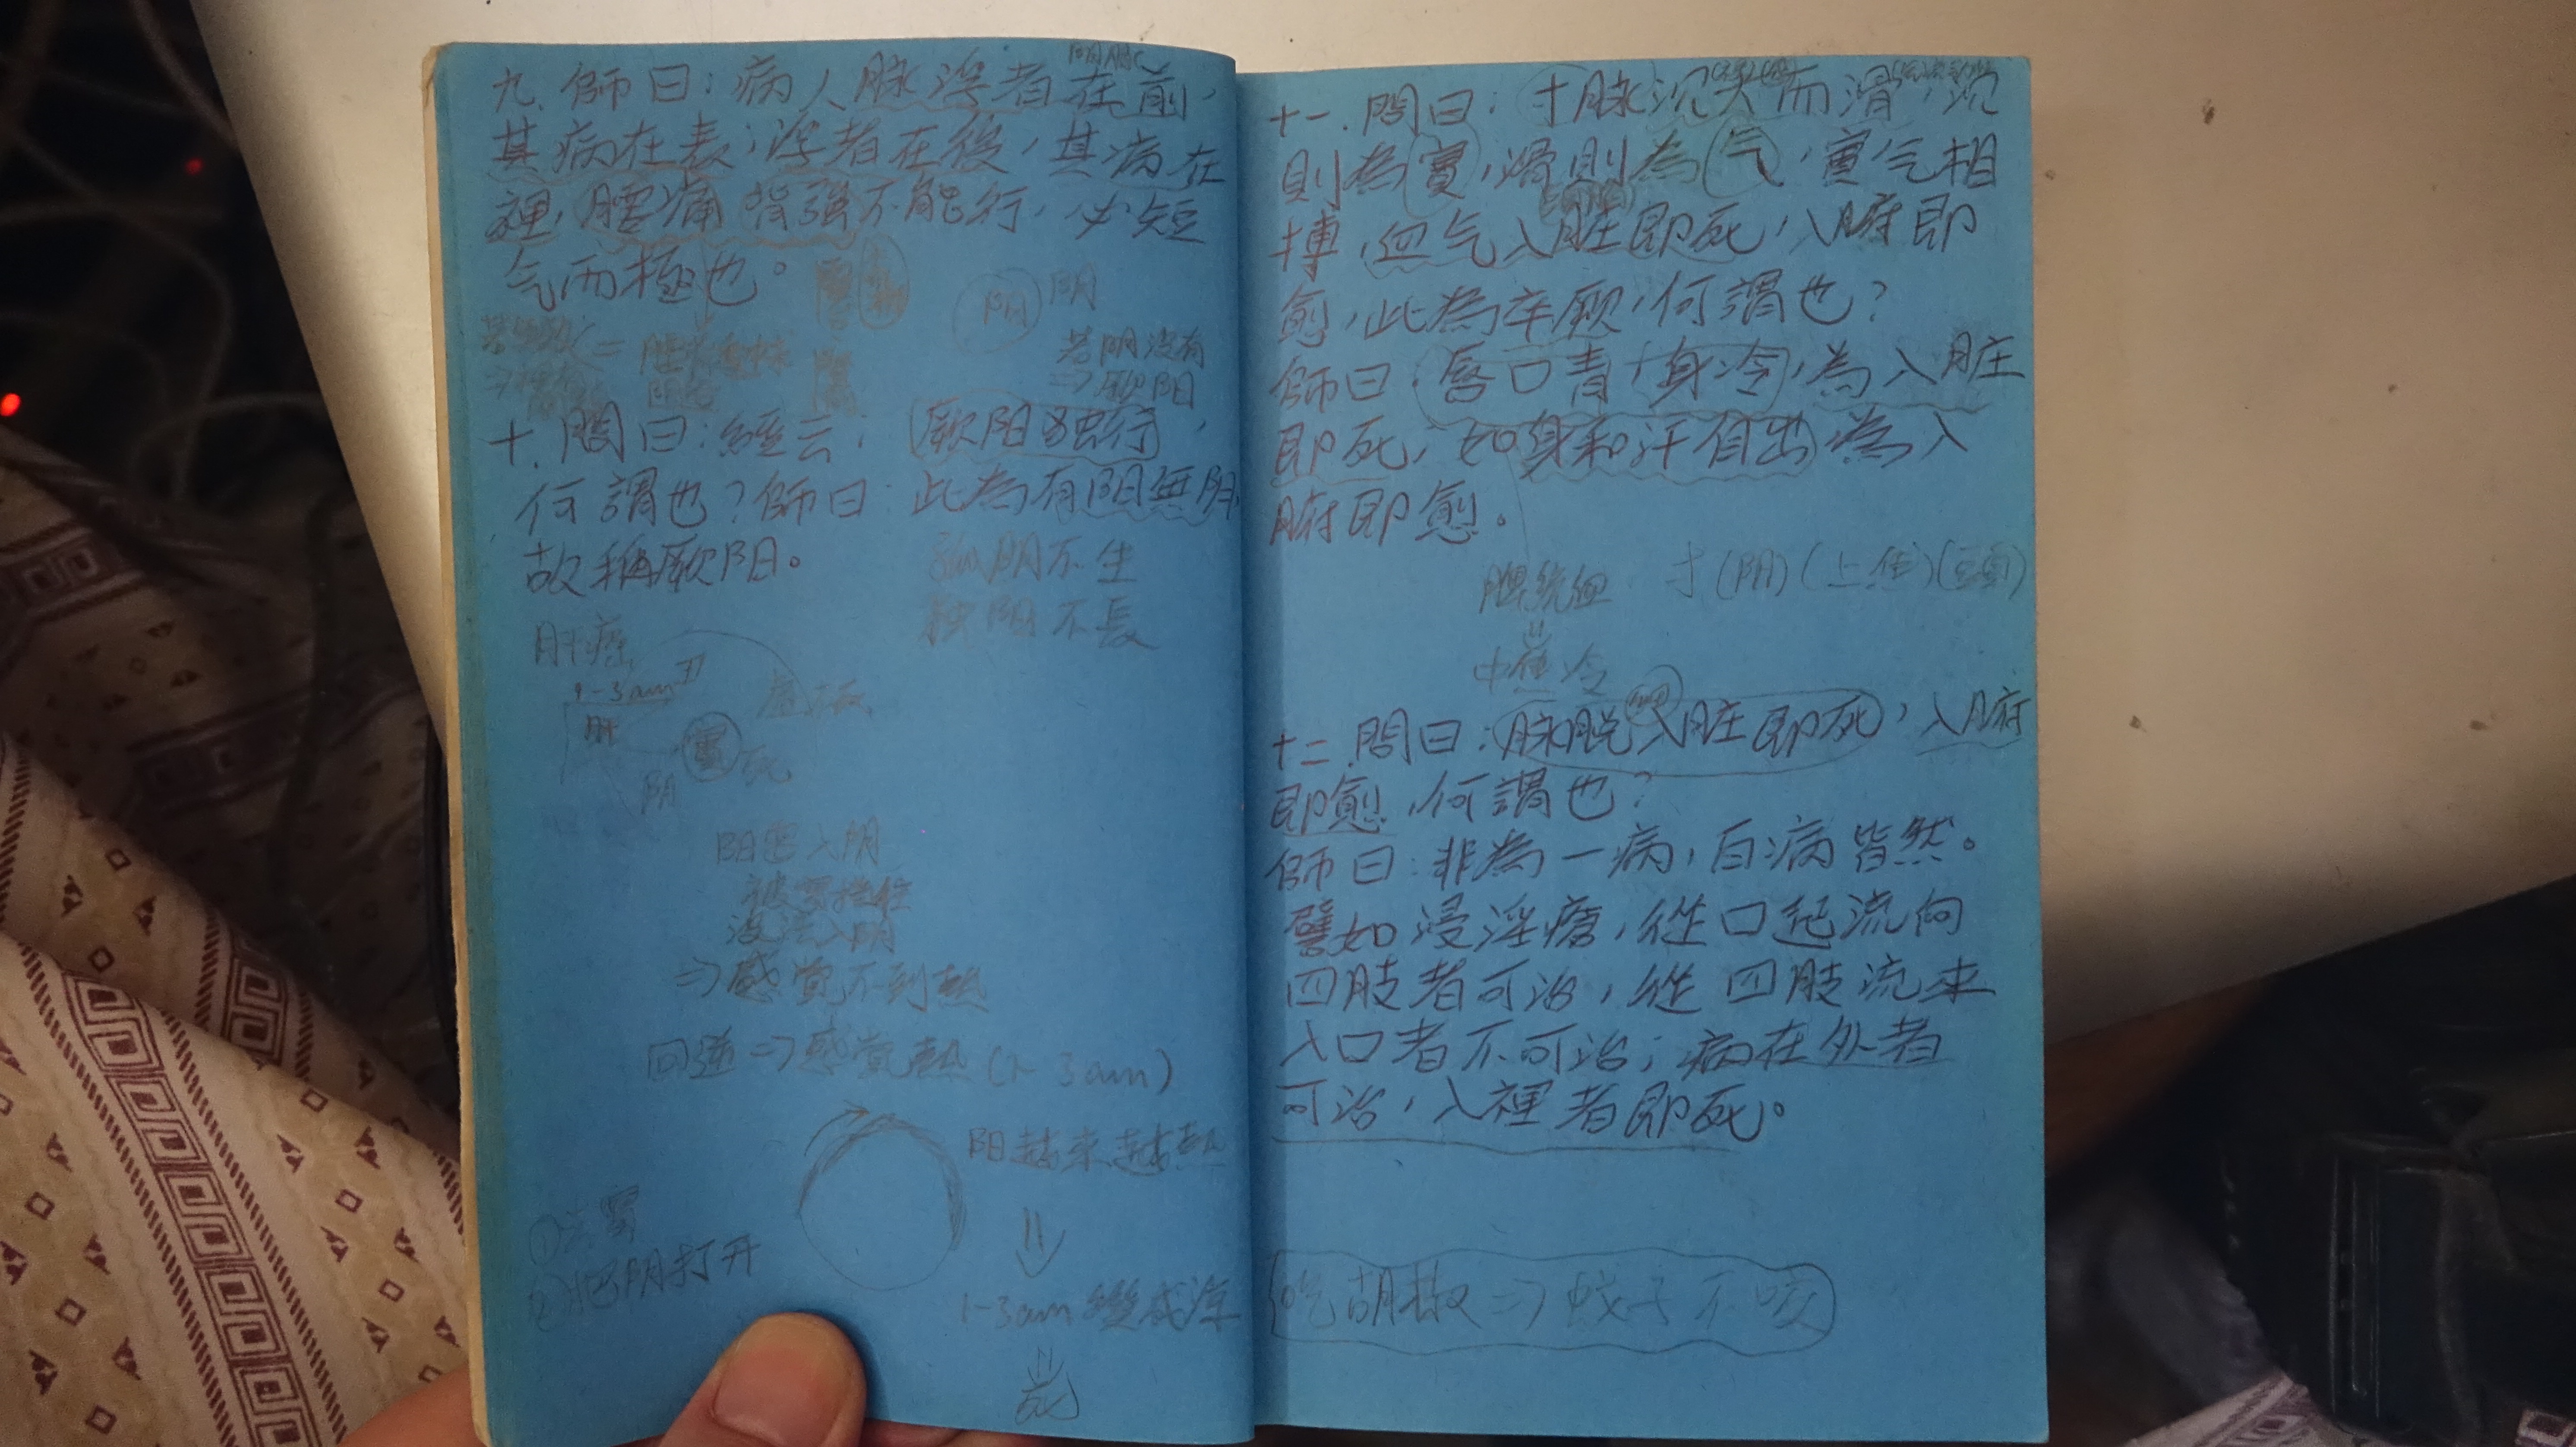 九. 師曰：病人脉浮者在前，
其病在表；浮者在後，其病在
裡，腰痛背強不能行，必短
气而極也。
阴 阳
若阴没有
⇒厥阳
十. 問曰：經云：厥阳独行，
何謂也？師曰：此為有阳無阴，
故稱厥阳。
孤阴不生
獨阳不長
肝癌
1-3am
肝
實 死
阴
阳要入阴
被實擋住
没法入阴
⇒感觉不到熱
回逆⇒感觉熱(1-3am)
阳越来越熱
⇓
1-3am 變成
⇓
死
①去實
②把阴打开
十一. 問曰：寸脉沉大而滑，沉
則為實，滑則為气，實气相
搏，血气入脏即死，入腑即
愈，此為卒厥，何謂也？
師曰：唇口青+身冷，為入脏
即死，如身和汗自出，為入
腑即愈。
脾統血
⇓
中焦冷
寸(阳)(上焦)
十二. 問曰：脉脱入脏即死，入腑
即愈，何謂也？
師曰：非為一病，百病皆然。
譬如浸淫瘡，從口起流向
四肢者可治，從四肢流来
入口者不可治；病在外者
可治，入裡者即死。
吃胡椒⇒蚊子不咬